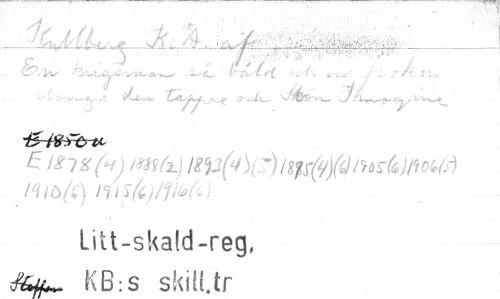 Kullberg K. A. af
En krigsman så båld och en fröken
Alonzo den tappre och Skön Imogine
E 1850 u
E 1878(4) 1888(2) 1893(4)(5) 1895(4)(6) 1905(6) 1906(5)
1910(6) 1915(6) 1916(6)
Litt-skald-reg.
Steffen KB:s skill.tr